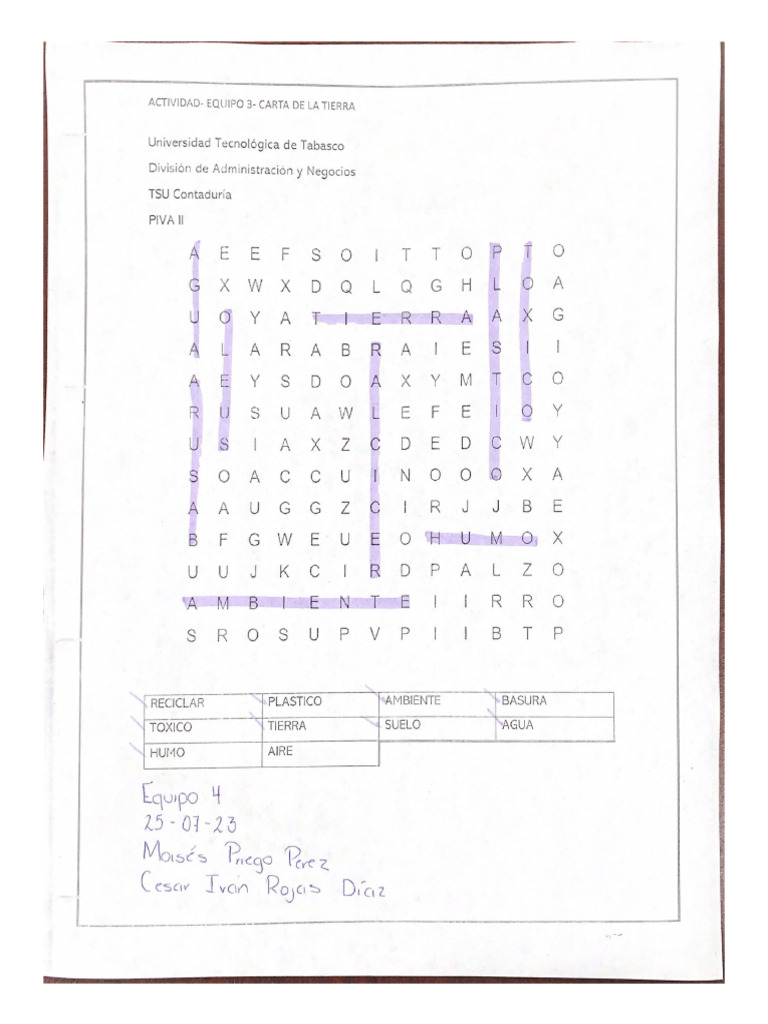 ACTIVIDAD- EQUIPO 3- CARTA DE LA TIERRA
Universidad Tecnológica de Tabasco
División de Administración y Negocios
TSU Contaduría
PIVA II
A E E F S O I T T O P T O
G X W X D Q L Q G H L O A
U O Y A T I E R R A A X G
A L A R A B R A I E S I I
A E Y S D O A X Y M T C O
R U S U A W L E F E I O Y
U S I A X Z C D E D C W Y
S O A C C U I N O O O X A
A A U G G Z C I R J J B E
B F G W E U E O H U M O X
U U J K C I R D P A L Z O
A M B I E N T E I I R R O
S R O S U P V P I I B T P
RECICLAR PLASTICO AMBIENTE BASURA
TOXICO TIERRA SUELO AGUA
HUMO AIRE
Equipo 4
25-07-23
Moisés Priego Perez
Cesar Iván Rojas Díaz